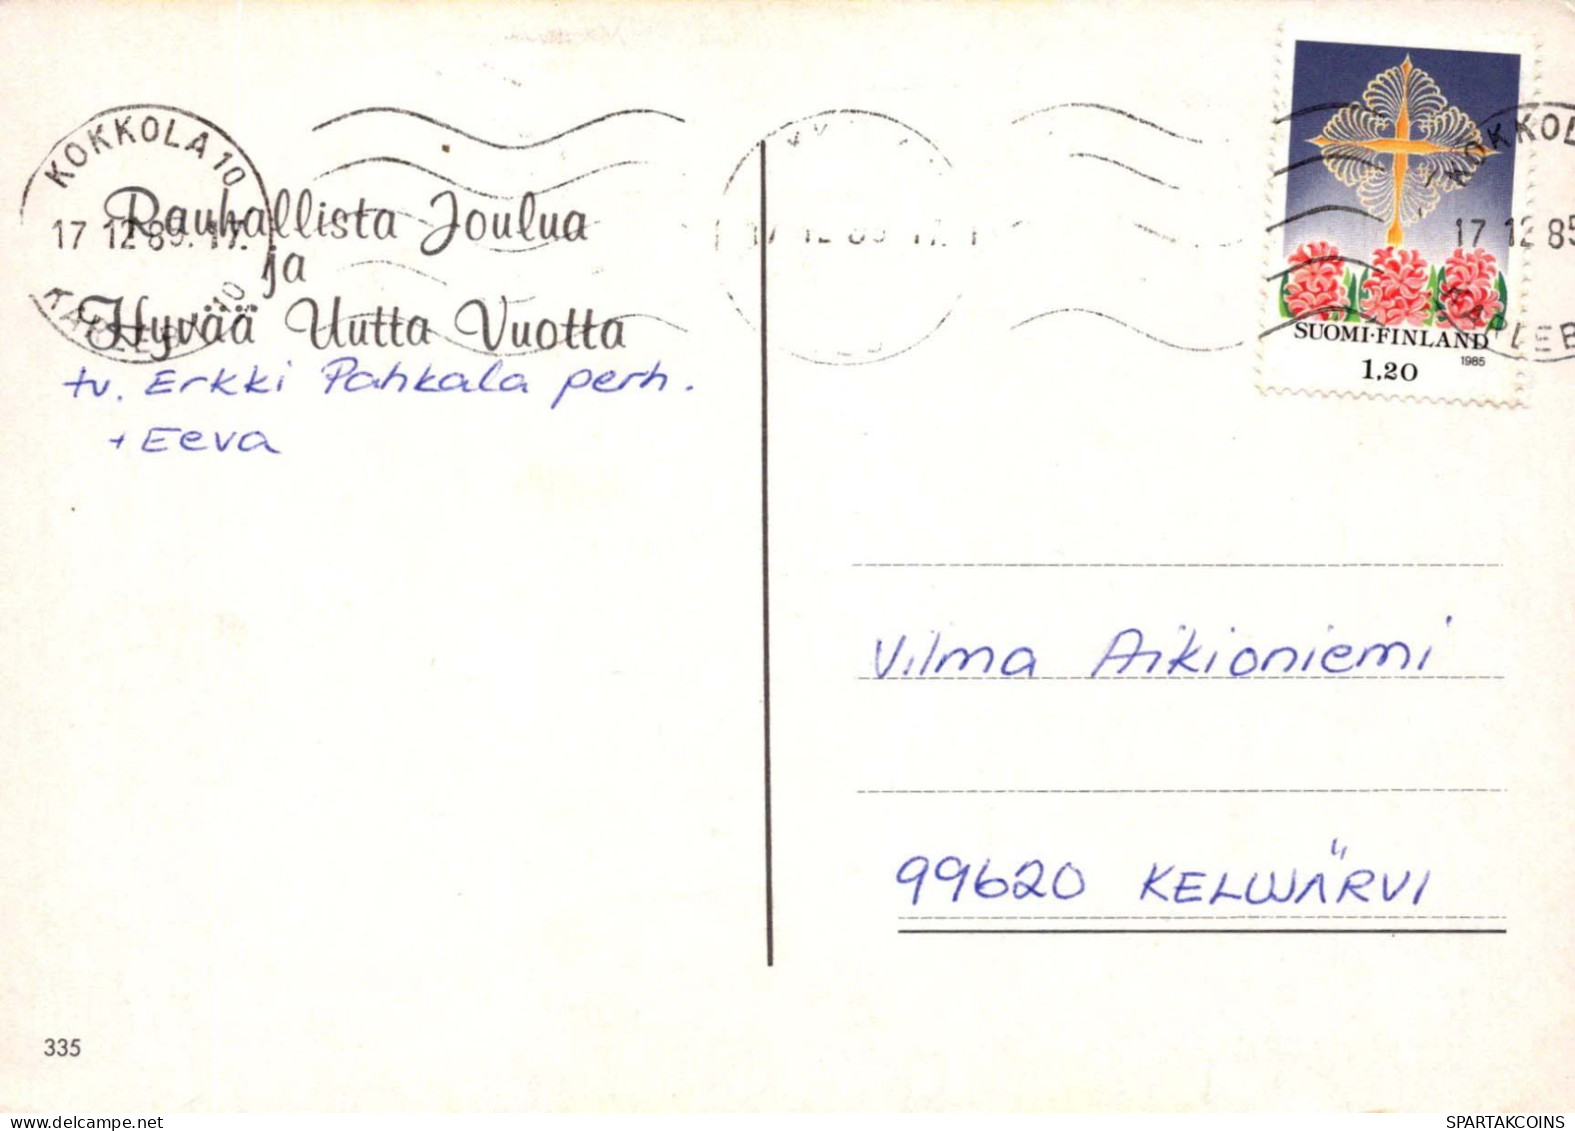 KOKKOLA 10
17 12 85. 17.
KARLEBY 10
Rauhallista Joulua
ja
Hyvää Uutta Vuotta
tv. Erkki Pahkala perh.
+ Eeva
335
17 12 85 17
KOKKOLA
17 12 85
KARLEB
SUOMI·FINLAND
1985
1,20
Vilma Aikioniemi
99620 KELUJÄRVI
www.delcampe.net
SPARTAKCOINS